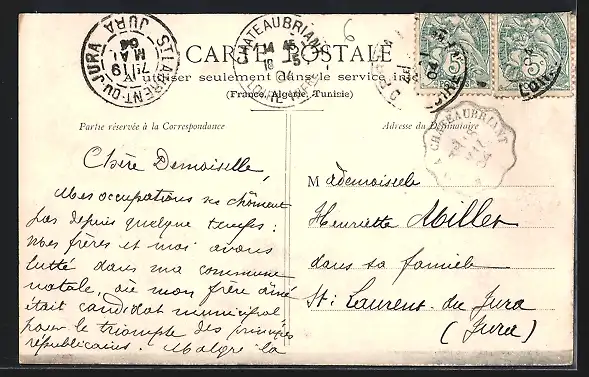 CARTE POSTALE
utiliser seulement dans le service int
(France, Algérie, Tunisie)
Partie réservée à la Correspondance
Adresse du Destinataire
Chère Demoiselle,
Mes occupations ne chôment
pas depuis quelque temps:
mes frères et moi avons
lutté dans ma commune
natale, où mon frère aîné
était candidat municipal
pour le triomphe des principes
républicains. Malgré la
Mademoiselle
Henriette Millet
dans sa famille
St. Laurent-du Jura
(Jura)
ST LAURENT-DU-JURA
JURA
19
MAI
04
CHATEAUBRIANT
18 5
LOIRE-INFRE
CHATEAUBRIANT
5
5
6